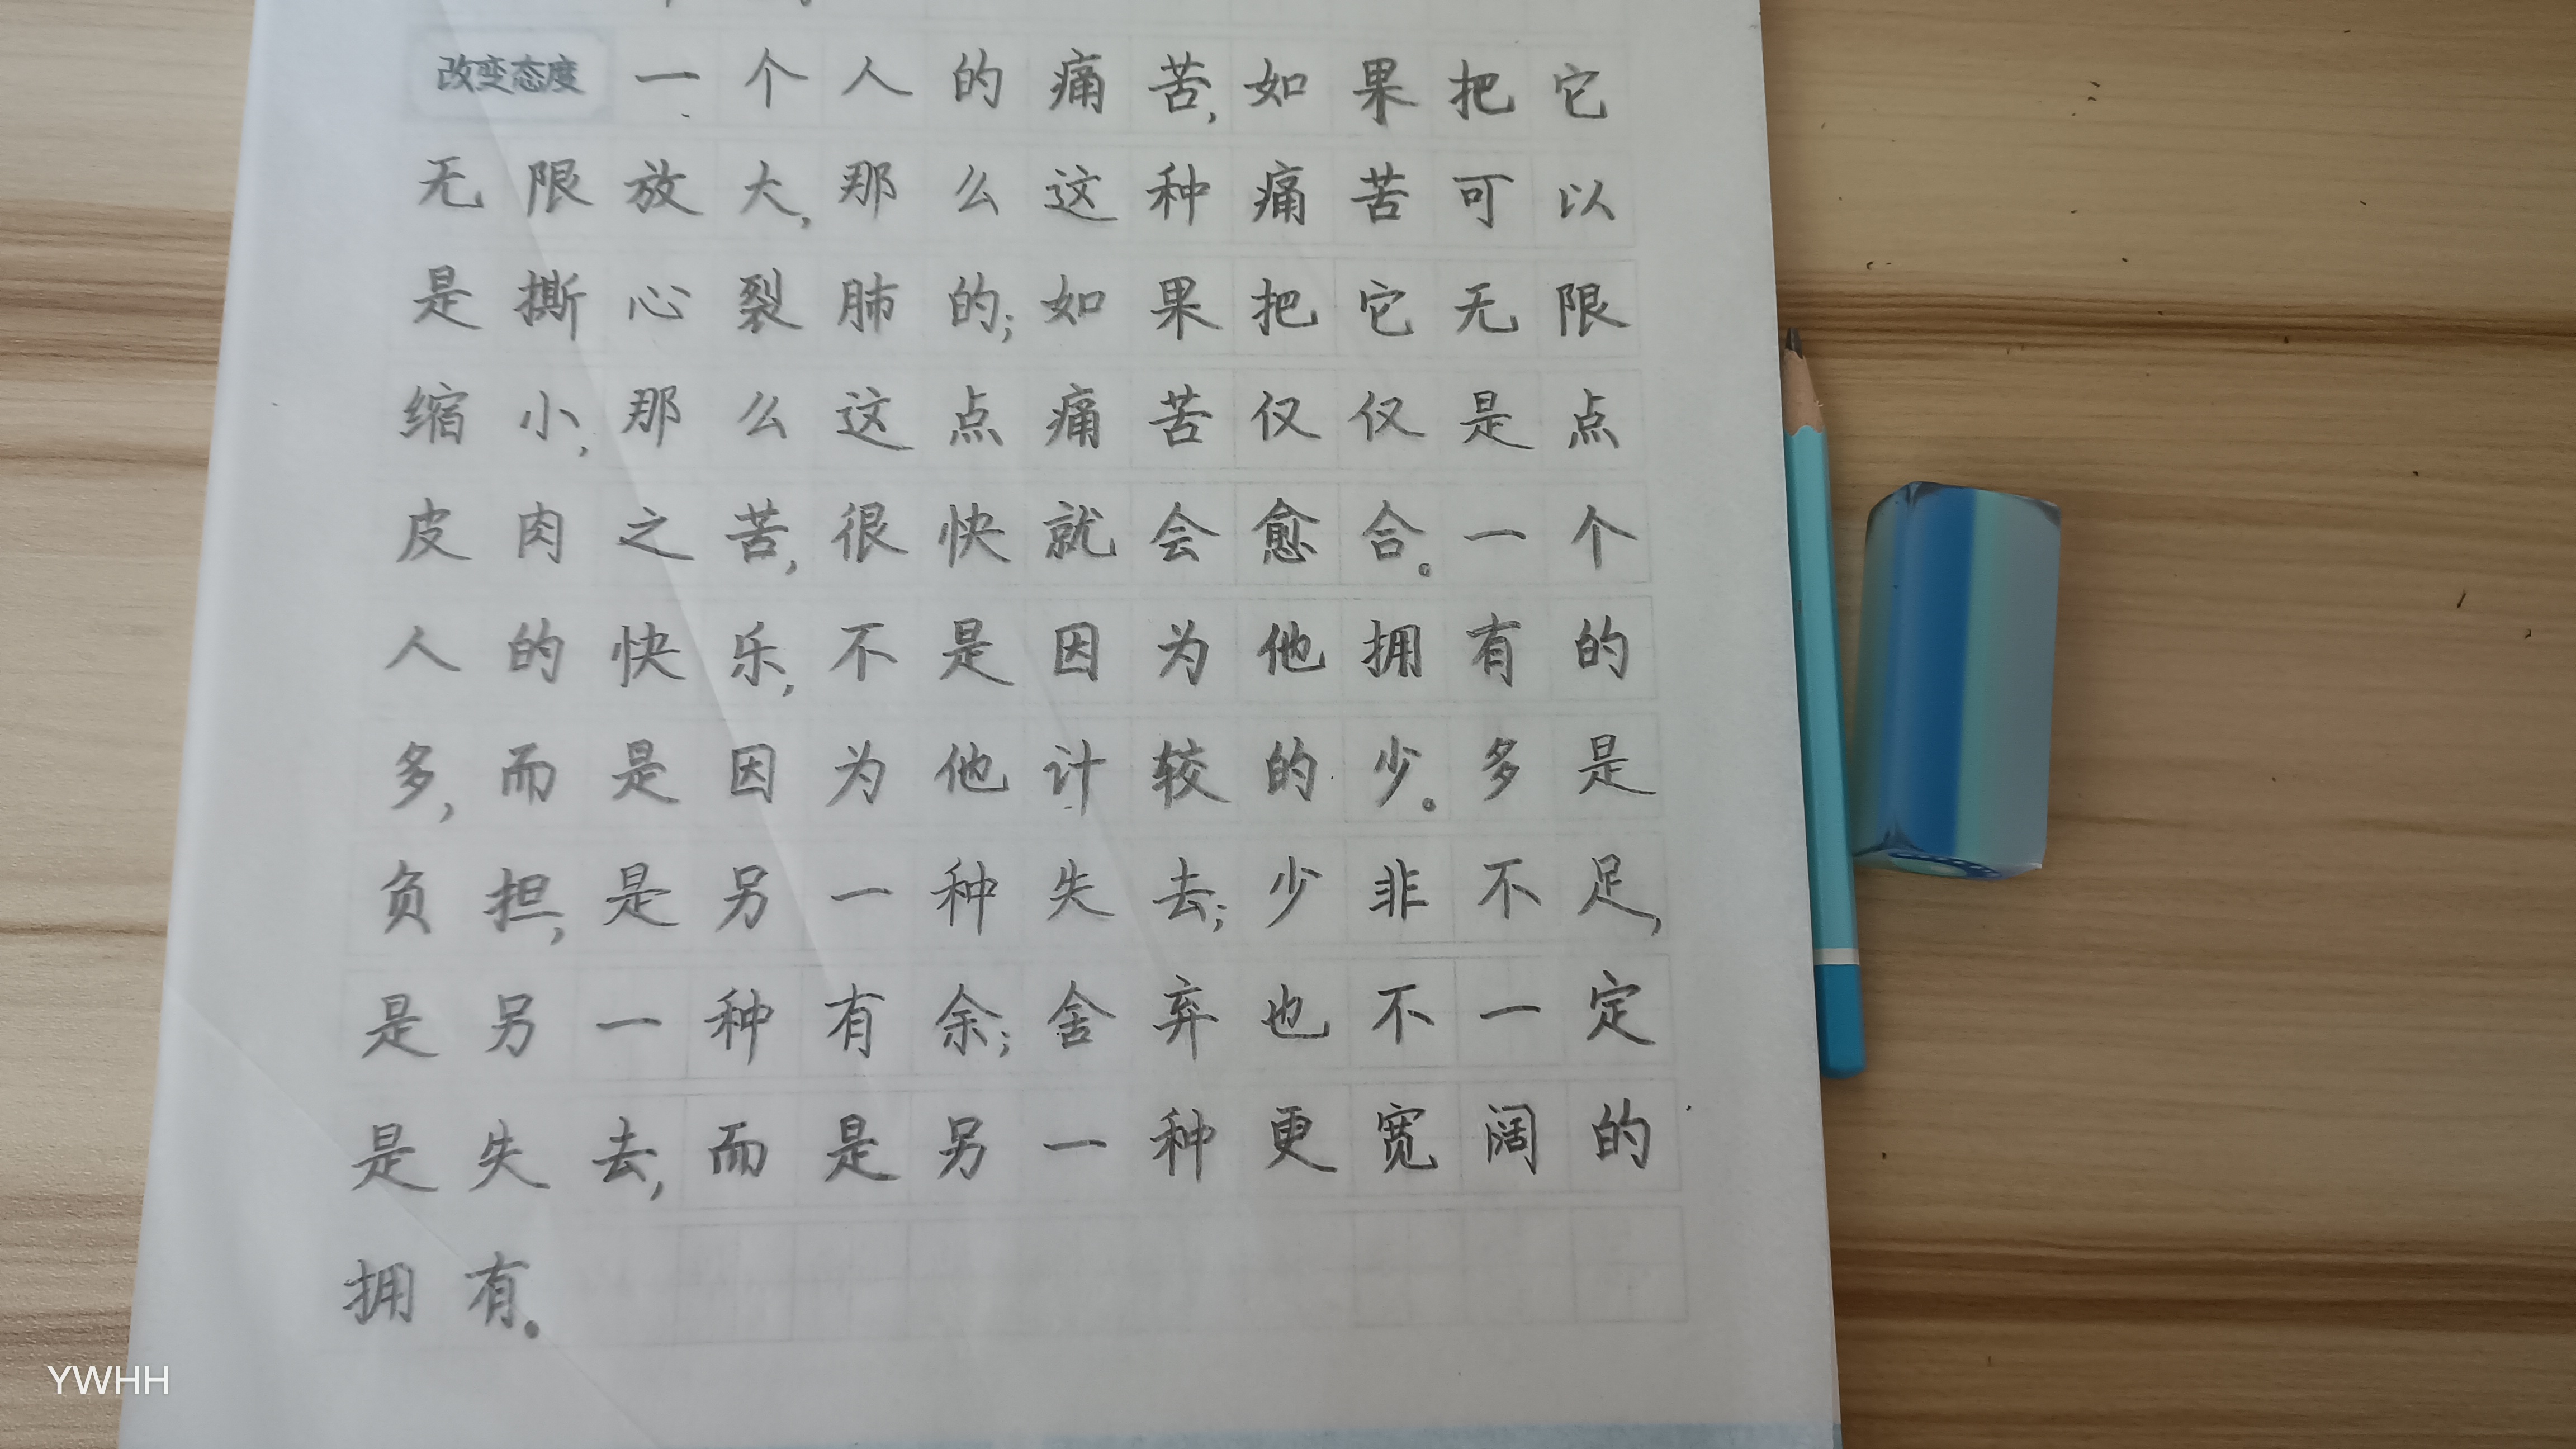 改变态度 一个人的痛苦,如果把它
无限放大,那么这种痛苦可以
是撕心裂肺的;如果把它无限
缩小,那么这点痛苦仅仅是点
皮肉之苦,很快就会愈合。一个
人的快乐,不是因为他拥有的
多,而是因为他计较的少。多是
负担,是另一种失去;少非不足,
是另一种有余;舍弃也不一定
是失去,而是另一种更宽阔的
拥有。
YWHH